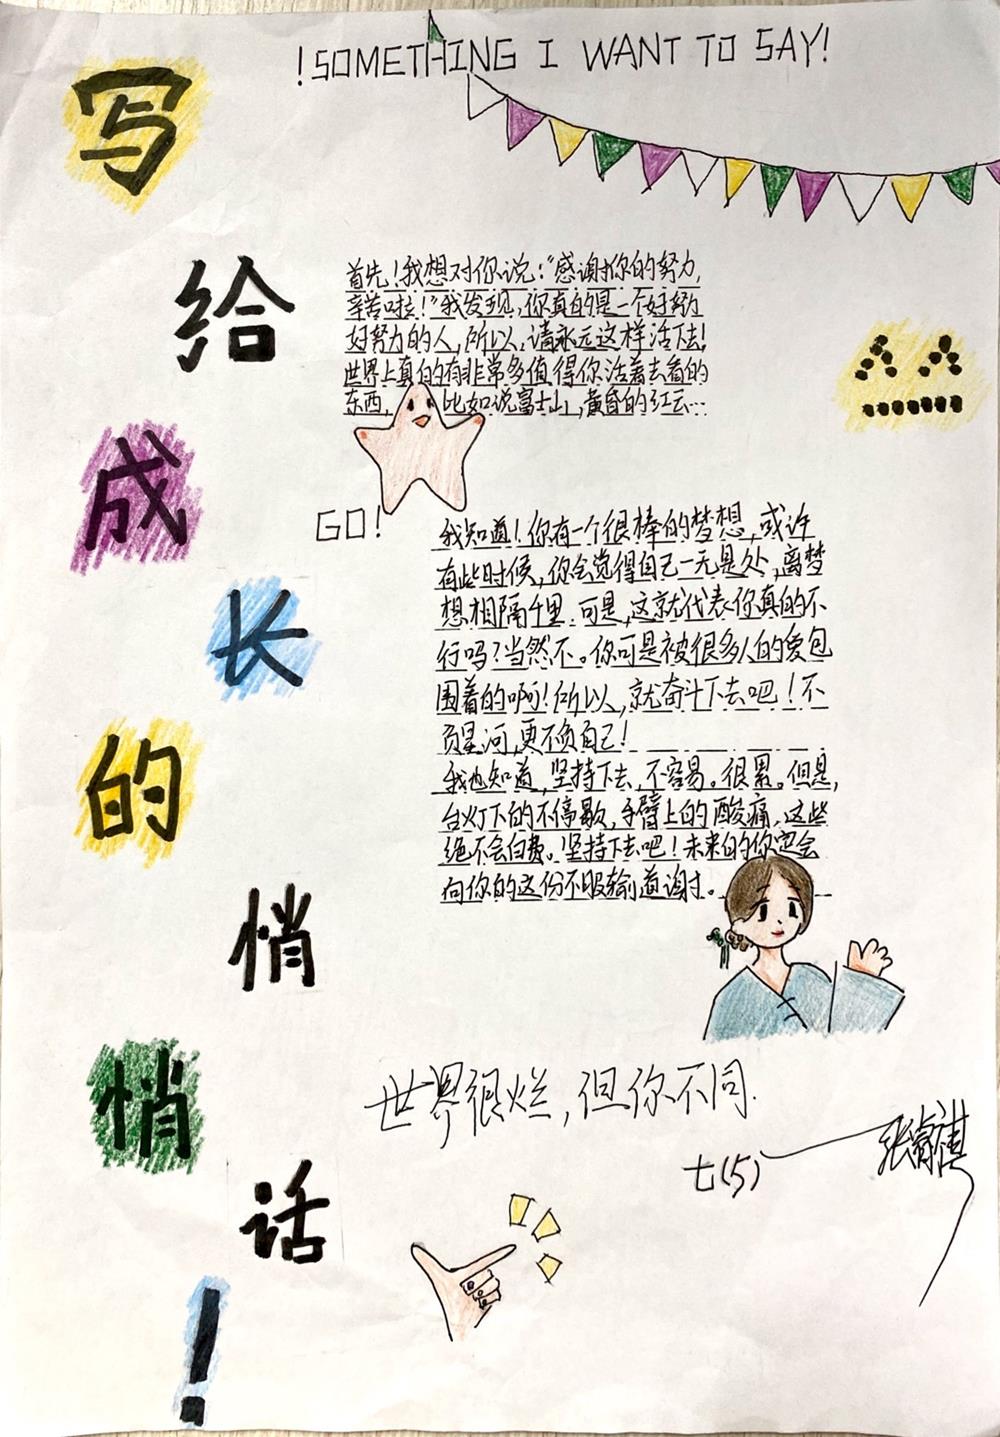 !SOMETHING I WANT TO SAY!
写给成长的悄悄话!
首先!我想对你说:“感谢你的努力,
辛苦啦!”我发现,你真的是一个好努力
好努力的人,所以,请永远这样活下去!
世界上真的有非常多值得你活着去看的
东西,比如说富士山,黄昏的红云…
GO!
我知道!你有一个很棒的梦想,或许
有些时候,你会觉得自己一无是处,离梦
想相隔千里.可是,这就代表你真的不
行吗?当然不。你可是被很多人的爱包
围着的啊!所以,就奋斗下去吧!不
负星河,更不负自己!
我也知道,坚持下去,不容易。很累。但是,
台灯下的不停歇,手臂上的酸痛,这些
绝不会白费。坚持下去吧!未来的你定会
向你的这份不服输道谢。
世界很烂,但你不同.
七(5)——张睿祺